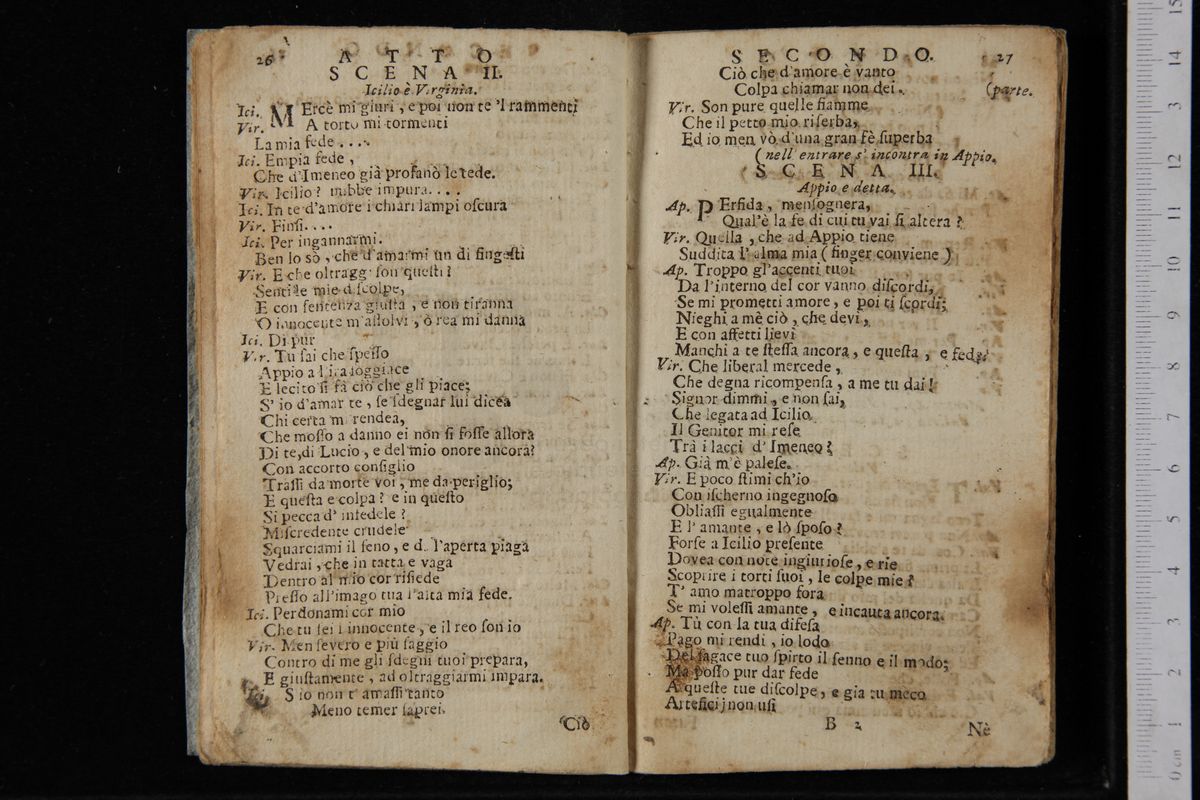 26 ATTO
SCENA II.
Icilio è Virginia.
Ici. MErcè mi giuri, e poi non te 'l rammenti
Vir. A torto mi tormenti
La mia fede ....
Ici. Empia fede,
Che d'Imeneo già profanò le tede.
Vir. Icilio? impura....
Ici. In te d'amore i chiari lampi oscura
Vir. Finsi....
Ici. Per ingannarmi.
Ben lo sò, che d'amarmi un di fingesti
Vir. E che son questi?
Senti le mie discolpe,
E con sentenza giusta, e non tiranna
O innocente m'assolvi, ò rea mi danna
Ici. Di pur
Vir. Tu sai che spesso
Appio
E lecito si fà ciò che gli piace;
S' io d'amar te, se sdegnar lui dicea
Chi certa mi rendea,
Che mosso a danno ei non si fosse allora
Di te, di Lucio, e del mio onore ancora?
Con accorto consiglio
Trassi da morte voi, me da periglio;
E questa e colpa? e in questo
Si pecca d' infedele?
Miscredente crudele
Squarciami il seno, e da l'aperta piaga
Vedrai, che in tatta e vaga
Dentro al mio cor risiede
Presso all'imago tua l'alta mia fede.
Ici. Perdonami cor mio
Che tu sei l innocente, e il reo son io
Vir. Men severo e più saggio
Contro di me gli sdegni tuoi prepara,
E giustamente, ad oltraggiarmi impara.
S io non t' amassi tanto
Meno temer saprei.
Ciò
SECONDO. 27
Ciò che d'amore è vanto
Colpa chiamar non dei. (parte.
Vir. Son pure quelle fiamme
Che il petto mio riserba,
Ed io men vò d'una gran fè superba
(nell' entrare s' incontra in Appio.
SCENA III.
Appio e detta.
Ap. PErfida, mensognera,
Qual'è la fe di cui tu vai sì altera?
Vir. Quella, che ad Appio tiene
Suddita l' alma mia (finger conviene)
Ap. Troppo gl'accenti tuoi
Da l'interno del cor vanno discordi,
Se mi prometti amore, e poi ti scordi;
Nieghi a mè ciò, che devi,
E con affetti lievi
Manchi a te stessa ancora, e questa, e fede?
Vir. Che liberal mercede,
Che degna ricompensa, a me tu dai!
Signor dimmi, e non sai,
Che legata ad Icilio
Il Genitor mi rese
Trà i lacci d' Imeneo?
Ap. Già m'è palese.
Vir. E poco stimi ch'io
Con ischerno ingegnoso
Obliassi egualmente
E l' amante, e lò sposo?
Forse a Icilio presente
Dovea con note ingiuriose, e rie
Scoprire i torti suoi, le colpe mie?
T' amo matroppo fora
Se mi volessi amante, e incauta ancora.
Ap. Tù con la tua difesa
Pago mi rendi, io lodo
Del sagace tuo spirto il senno e il modo;
Ma posso pur dar fede
A queste tue discolpe, e gia tu meco
Artefici j non usi
B 2 Nè